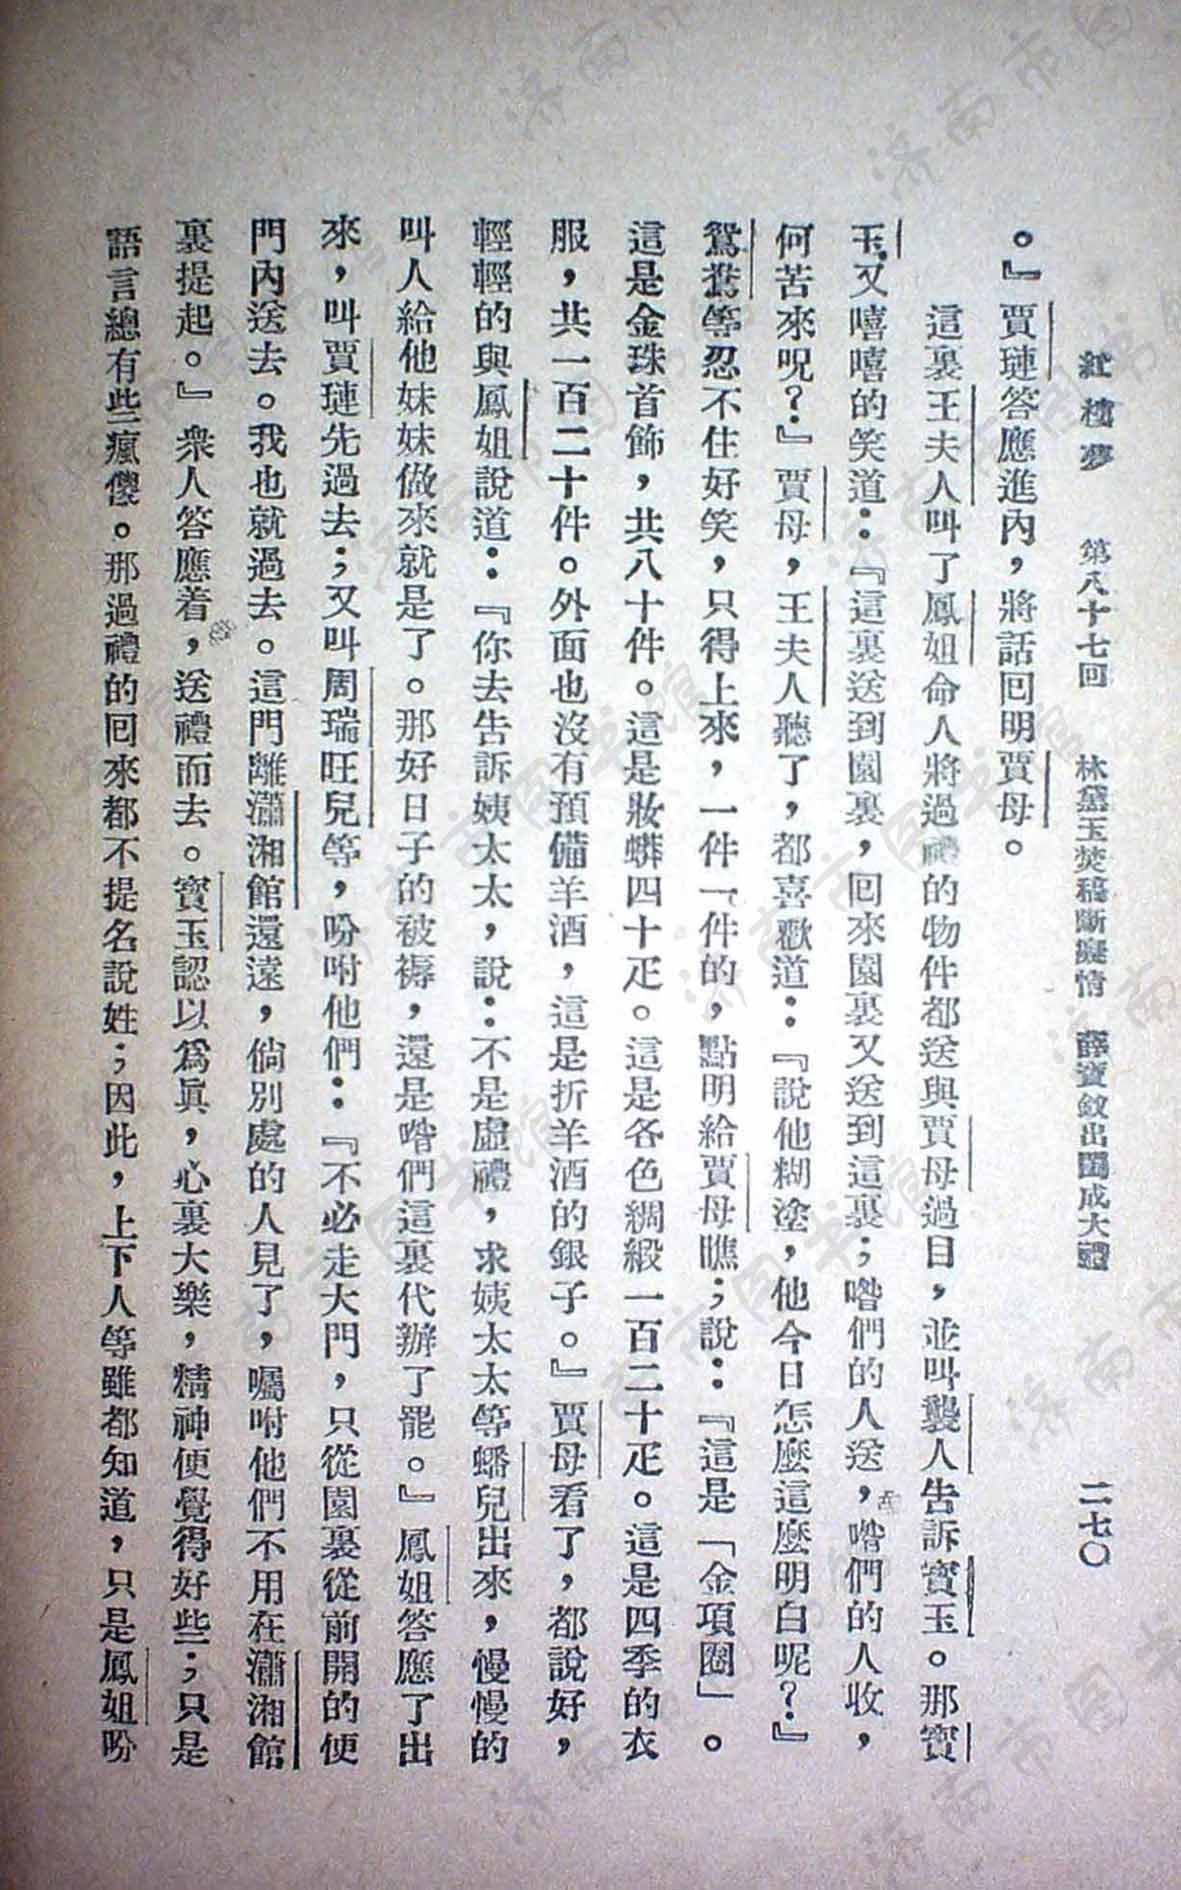 紅樓夢　第八十七回　林黛玉焚稿斷癡情　薛寶釵出閨成大禮　二七〇
。』賈璉答應進內，將話回明賈母。
這裏王夫人叫了鳳姐命人將過禮的物件都送與賈母過目，並叫襲人告訴寶玉。那寶
玉又嘻嘻的笑道：『這裏送到園裏，回來園裏又送到這裏；喒們的人送，喒們的人收，
何苦來呢？』賈母，王夫人聽了，都喜歡道：『說他糊塗，他今日怎麼這麼明白呢？』
鴛鴦等忍不住好笑，只得上來，一件一件的，點明給賈母瞧；說：『這是「金項圈」。
這是金珠首飾，共八十件。這是妝蟒四十疋。這是各色綢緞一百二十疋。這是四季的衣
服，共一百二十件。外面也沒有預備羊酒，這是折羊酒的銀子。』賈母看了，都說好，
輕輕的與鳳姐說道：『你去告訴姨太太，說：不是虛禮，求姨太太等蟠兒出來，慢慢的
叫人給他妹妹做來就是了。那好日子的被褥，還是喒們這裏代辦了罷。』鳳姐答應了出
來，叫賈璉先過去；又叫周瑞旺兒等，吩咐他們：『不必走大門，只從園裏從前開的便
門內送去。我也就過去。這門離瀟湘館還遠，倘別處的人見了，囑咐他們不用在瀟湘館
裏提起。』衆人答應着，送禮而去。寶玉認以爲眞，心裏大樂，精神便覺得好些；只是
語言總有些瘋傻。那過禮的回來都不提名說姓；因此，上下人等雖都知道，只是鳳姐吩
济南市图书馆